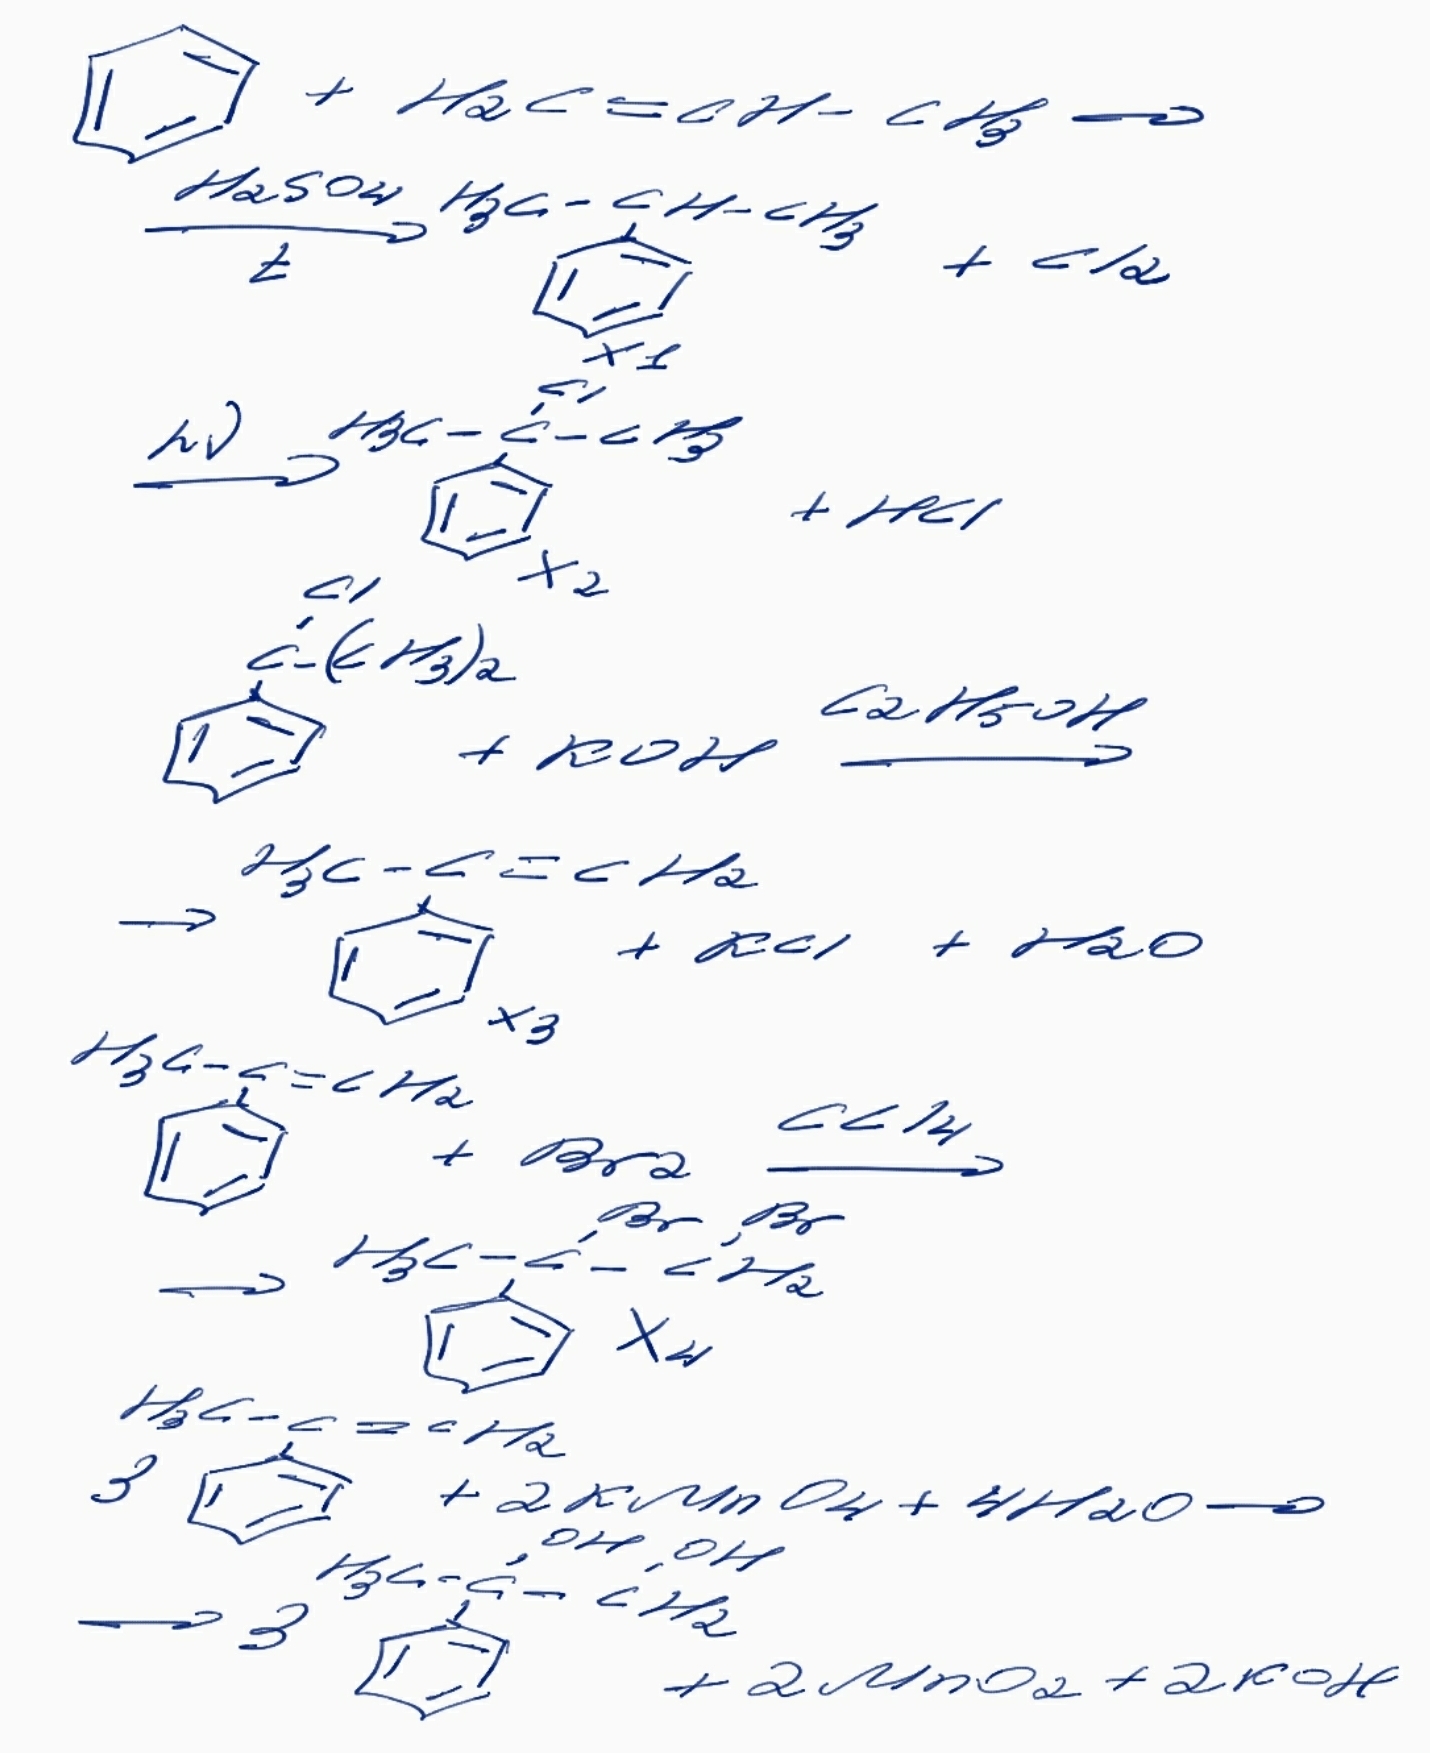 + H2C=CH-CH3 →
H2SO4 H3C-CH-CH3
t + Cl2
X1
Cl
hν H3C-C-CH3
+ HCl
X2
Cl
C-(CH3)2
+ KOH C2H5OH →
H3C-C=CH2
→ + KCl + H2O
X3
H3C-C=CH2
+ Br2 CCl4 →
Br Br
→ H3C-C-CH2
X4
H3C-C=CH2
3 + 2KMnO4 + 4H2O →
OH OH
H3C-C-CH2
→ 3
+ 2MnO2 + 2KOH